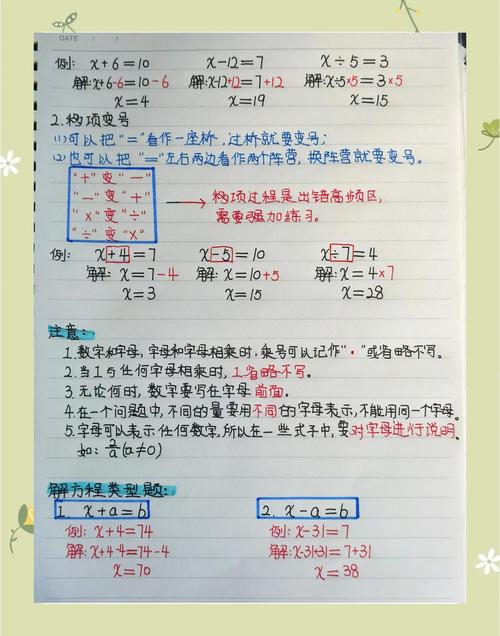 DATE / /
例: x+6=10 x-12=7 x÷5=3
解:x+6-6=10-6 解:x-12+12=7+12 解:x÷5×5=3×5
x=4 x=19 x=15
2.移项变号
(1)可以把"="看作一座桥,过桥就要变号;
(2)也可以把"="左右两边看作两个阵营,换阵营就要变号。
"+"变"-"
"-"变"+"
"×"变"÷"
"÷"变"×"
移项过程是出错高频区,
需要强加练习。
例: x+4=7 x-5=10 x÷7=4
解: x=7-4 解: x=10+5 解: x=4×7
x=3 x=15 x=28
注意:
1.数字和字母,字母和字母相乘时,乘号可以记作"·"或省略不写。
2.当1与任何字母相乘时,1省略不写。
3.无论何时,数字要写在字母前面。
4.在一个问题中,不同的量要用不同的字母表示,不能用同一个字母。
5.字母可以表示任何数字,所以在一些式子中,要对字母进行说明。
如: 2/a(a≠0)
解方程类型题:
1. x+a=b 2. x-a=b
例: x+4=74 例: x-31=7
解:x+4-4=74-4 解:x-31+31=7+31
x=70 x=38